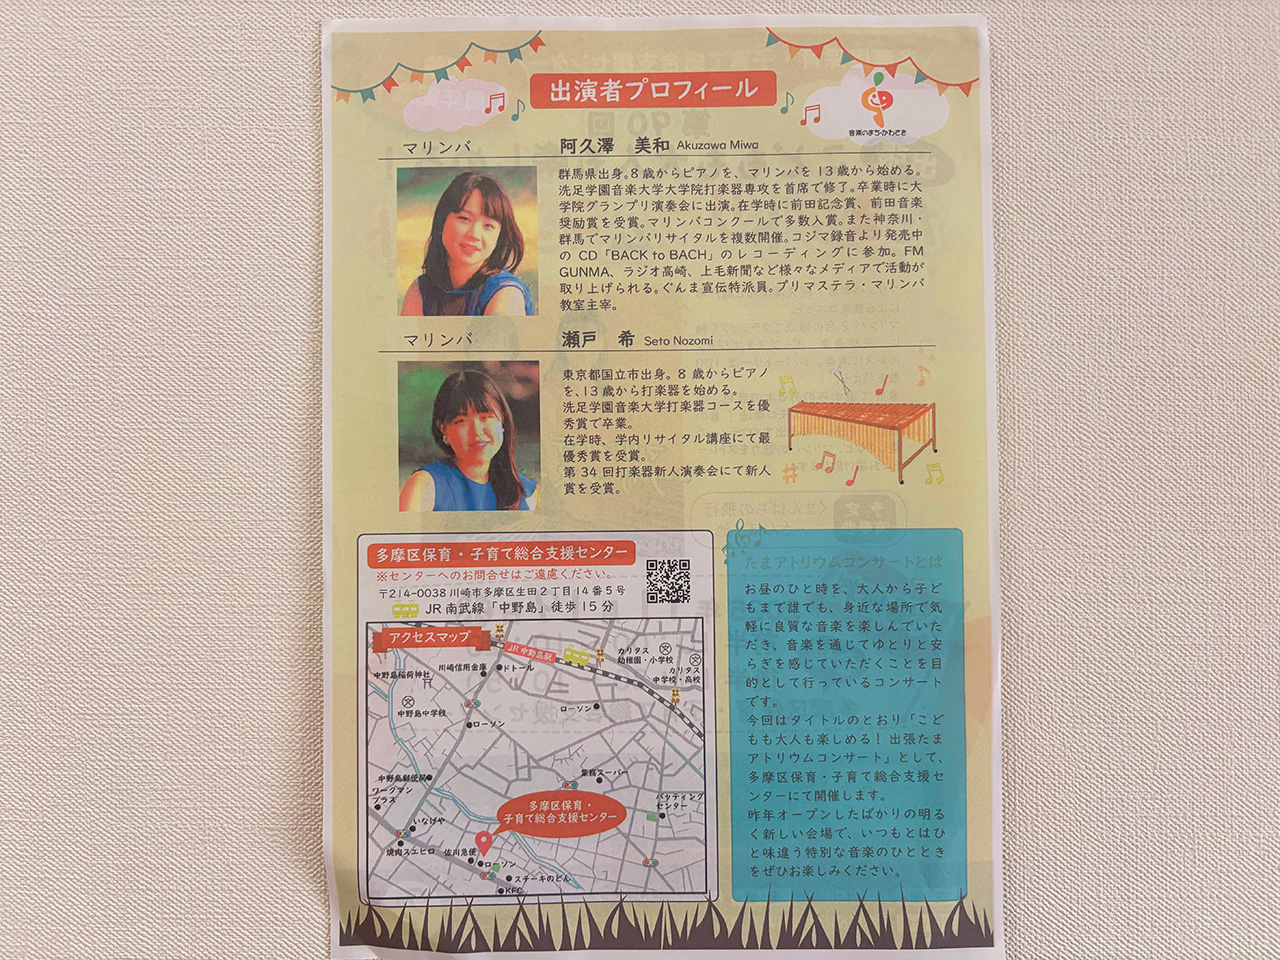 出演者プロフィール
音楽のまち・かわさき
マリンバ
阿久澤 美和 Akuzawa Miwa
群馬県出身。8歳からピアノを、マリンバを13歳から始める。
洗足学園音楽大学大学院打楽器専攻を首席で修了。卒業時に大
学院グランプリ演奏会に出演。在学時に前田記念賞、前田音楽
奨励賞を受賞。マリンバコンクールで多数入賞。また神奈川・
群馬でマリンバリサイタルを複数開催。コジマ録音より発売中
の CD「BACK to BACH」のレコーディングに参加。FM
GUNMA、ラジオ高崎、上毛新聞など様々なメディアで活動が
取り上げられる。ぐんま宣伝特派員。プリマステラ・マリンバ
教室主宰。
マリンバ
瀬戸 希 Seto Nozomi
東京都国立市出身。8歳からピアノ
を、13歳から打楽器を始める。
洗足学園音楽大学打楽器コースを優
秀賞で卒業。
在学時、学内リサイタル講座にて最
優秀賞を受賞。
第34回打楽器新人演奏会にて新人
賞を受賞。
多摩区保育・子育て総合支援センター
※センターへのお問合せはご遠慮ください。
〒214-0038 川崎市多摩区生田2丁目14番5号
JR南武線「中野島」徒歩15分
アクセスマップ
JR 中野島駅
カリタス
幼稚園・小学校
カリタス
中学校・高校
川崎信用金庫
ドトール
中野島稲荷神社
中野島中学校
ローソン
ローソン
中野島郵便局
ワークマン
プラス
業務スーパー
バッティング
センター
多摩区保育・
子育て総合支援センター
いなげや
焼肉スエヒロ
佐川急便
ローソン
ステーキのどん
KFC
たまアトリウムコンサートとは
お昼のひと時を、大人から子ど
もまで誰でも、身近な場所で気
軽に良質な音楽を楽しんでいた
だき、音楽を通じてゆとりと安
らぎを感じていただくことを目
的として行っているコンサート
です。
今回はタイトルのとおり「こど
もも大人も楽しめる！出張たま
アトリウムコンサート」として、
多摩区保育・子育て総合支援セ
ンターにて開催します。
昨年オープンしたばかりの明る
く新しい会場で、いつもとはひ
と味違う特別な音楽のひととき
をぜひお楽しみください。